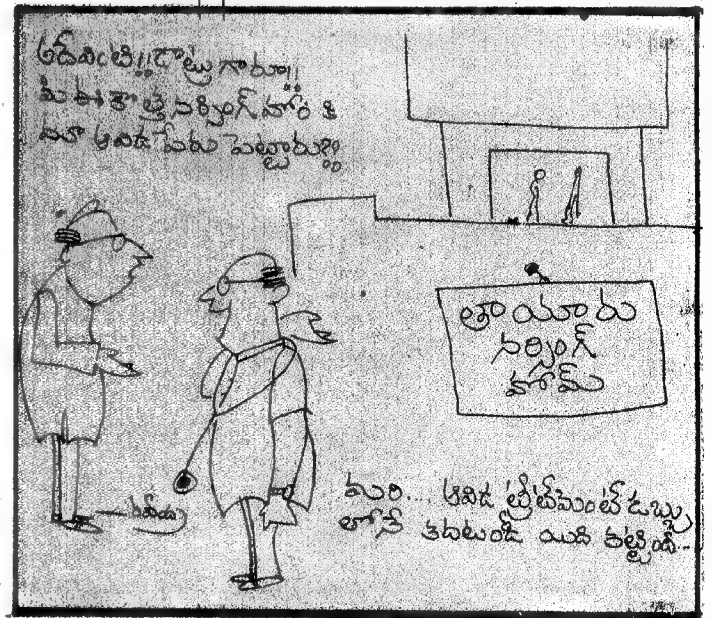 అదేవింటి!! డాట్రు గారూ!!
మీ ఈ కొత్త నర్సింగ్ హోం కి
మా ఆవిడ పేరు పెట్టారు??
తాయారు
నర్సింగ్
హోమ్
మరి... ఆవిడ ట్రీట్‌మెంట్ డబ్బు
లోనే కదటండీ యిది కట్టింది..